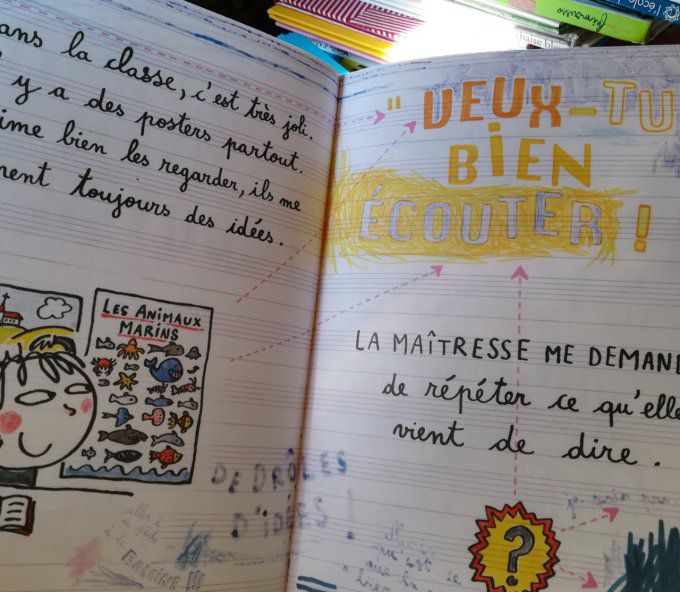 ans la classe, c'est très joli.
y a des posters partout.
ime bien les regarder, ils me
nent toujours des idées.
LES ANIMAUX
MARINS
DE DRÔLES
D'IDÉES !
aller à
la pêche
à la
BALEINE !!!
" VEUX-TU
BIEN
ÉCOUTER !
LA MAÎTRESSE ME DEMAND
de répéter ce qu'elle
vient de dire.
?
l'école